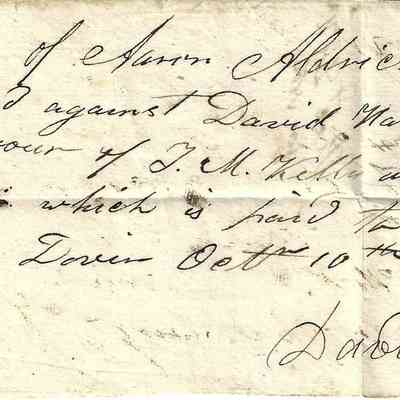 of Aaron Aldric
d against David Ha
our of T. M. Kelly a
which is paid to
Dover Octr 10 th
Davi